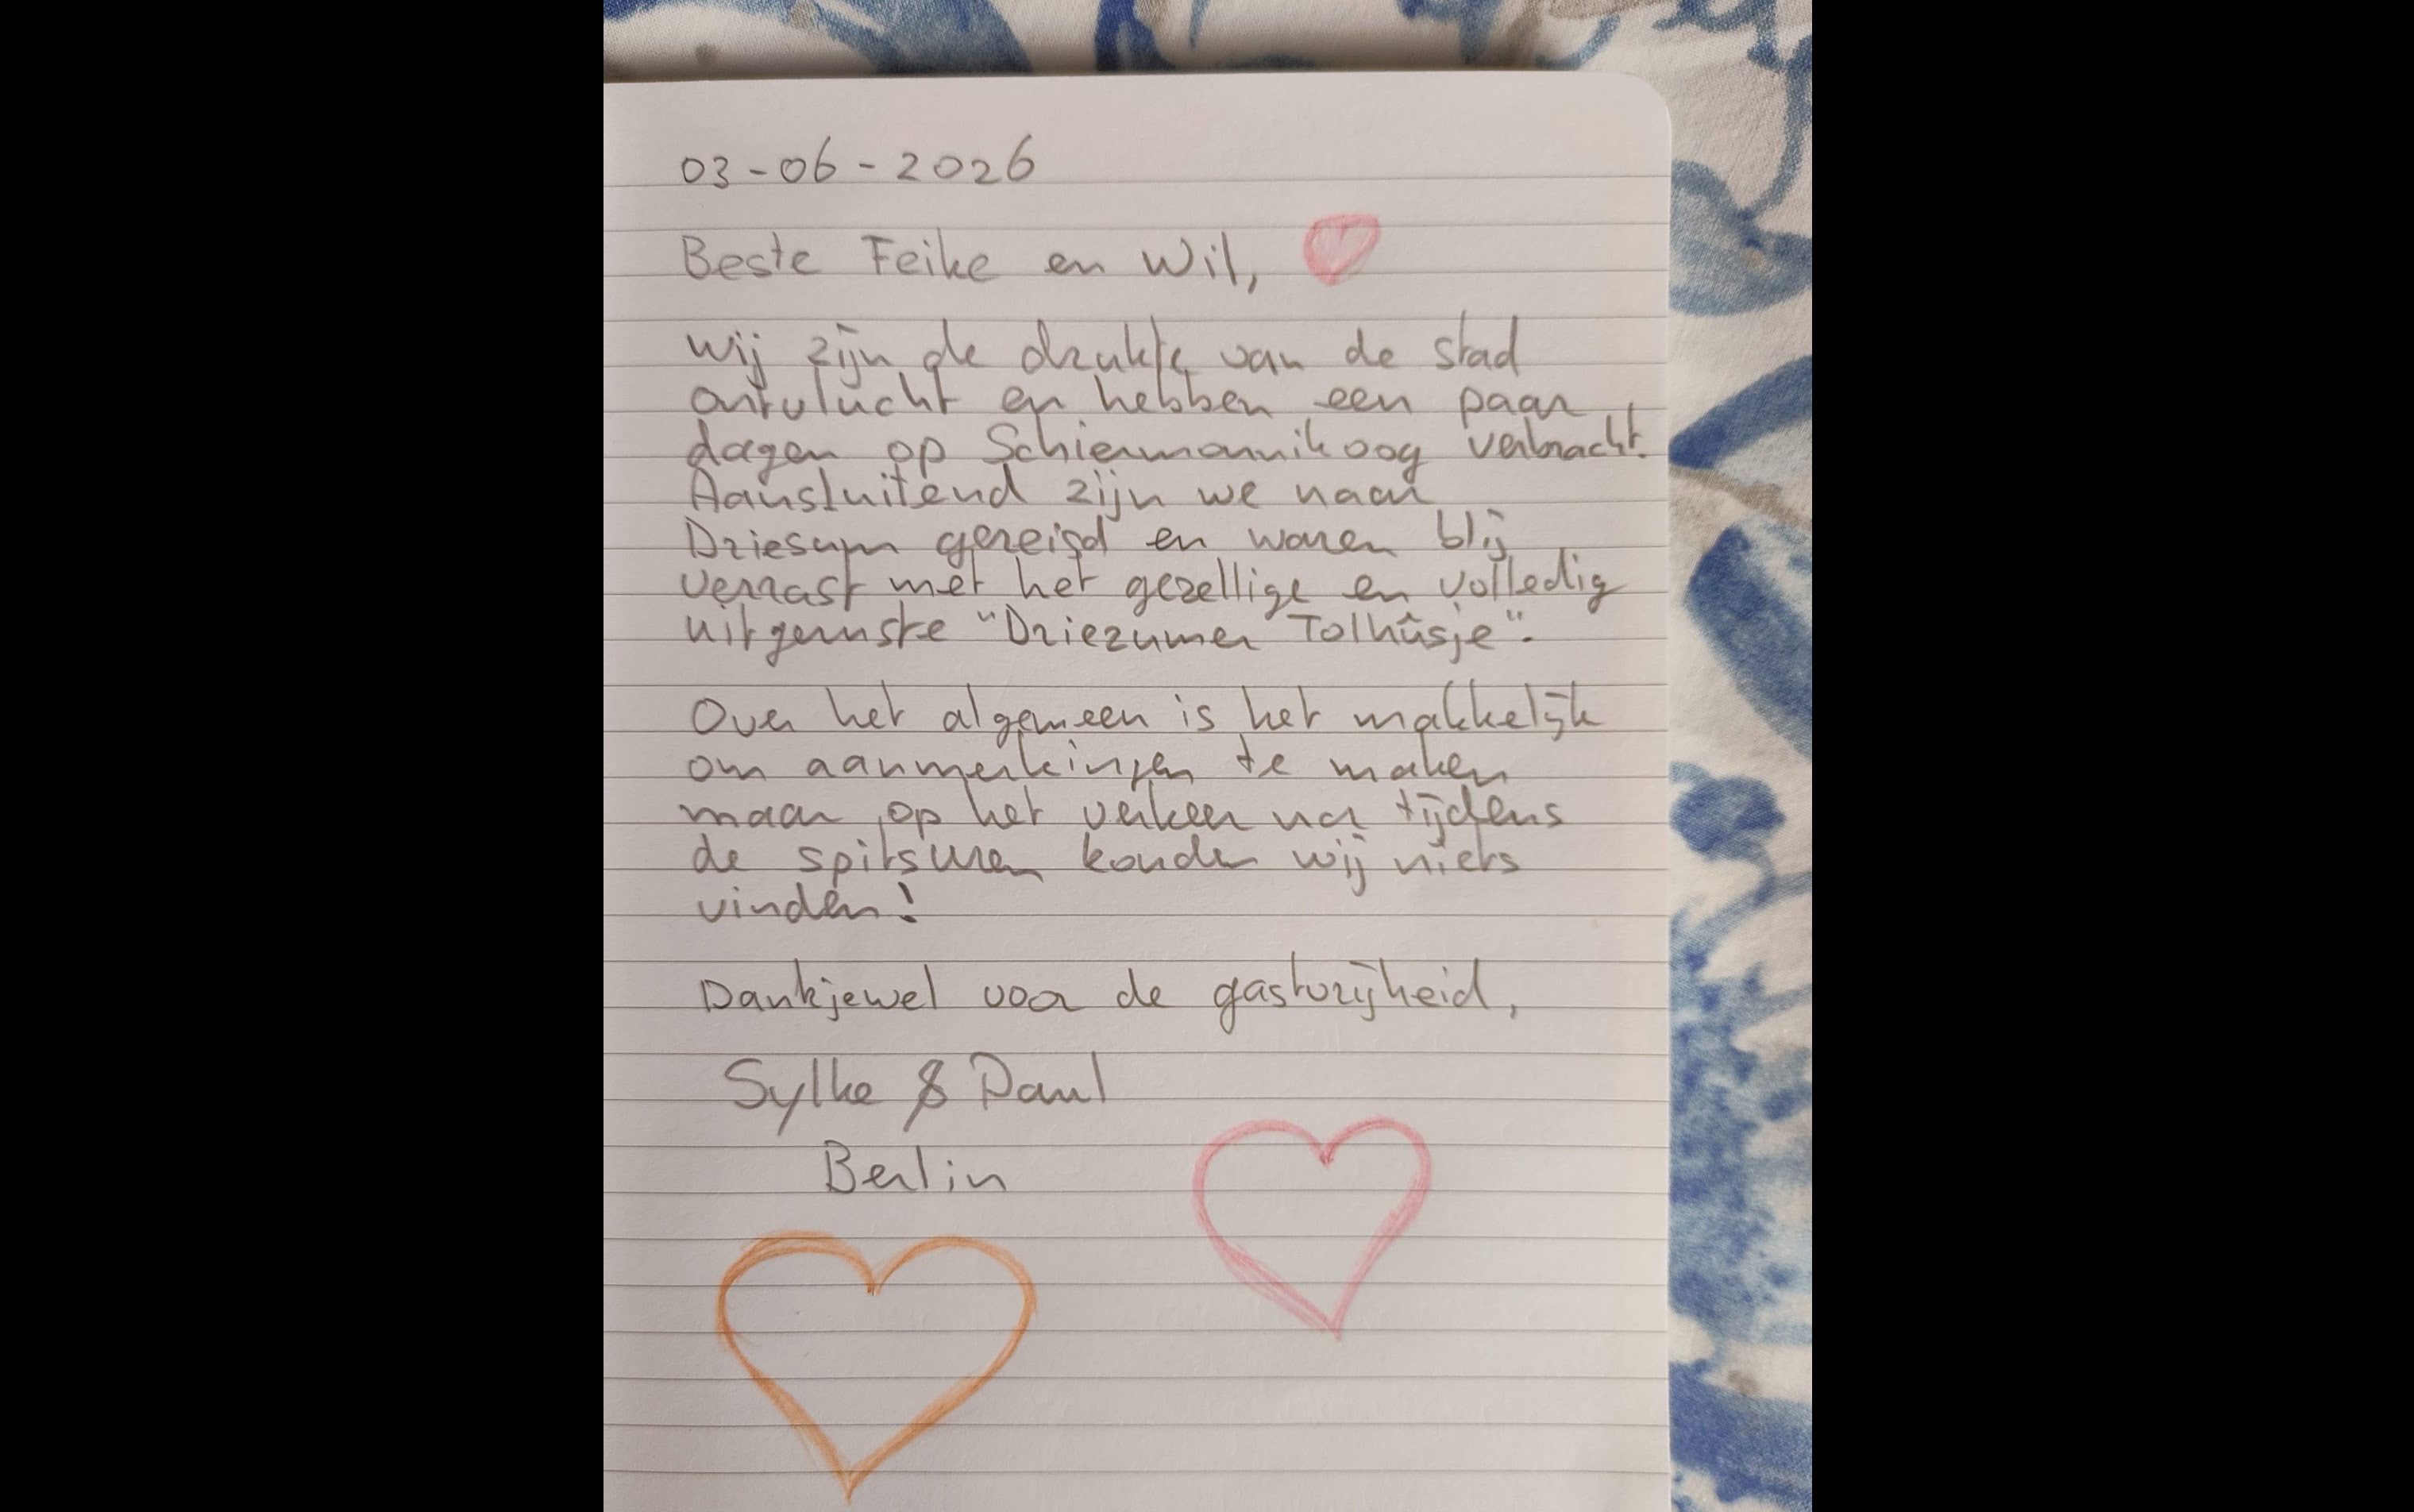 03-06-2026
Beste Feike en Wil,
Wij zijn de drukte van de stad
ontvlucht en hebben een paar
dagen op Schiermonnikoog verbracht.
Aansluitend zijn we naar
Driesum gereisd en waren blij
verrast met het gezellige en volledig
uitgeruste "Driezumer Tolhûsje".
Over het algemeen is het makkelijk
om aanmerkingen te maken
maar op het verkeer na tijdens
de spitsuren konden wij niets
vinden!
Dankjewel voor de gastvrijheid,
Sylke & Paul
Berlin